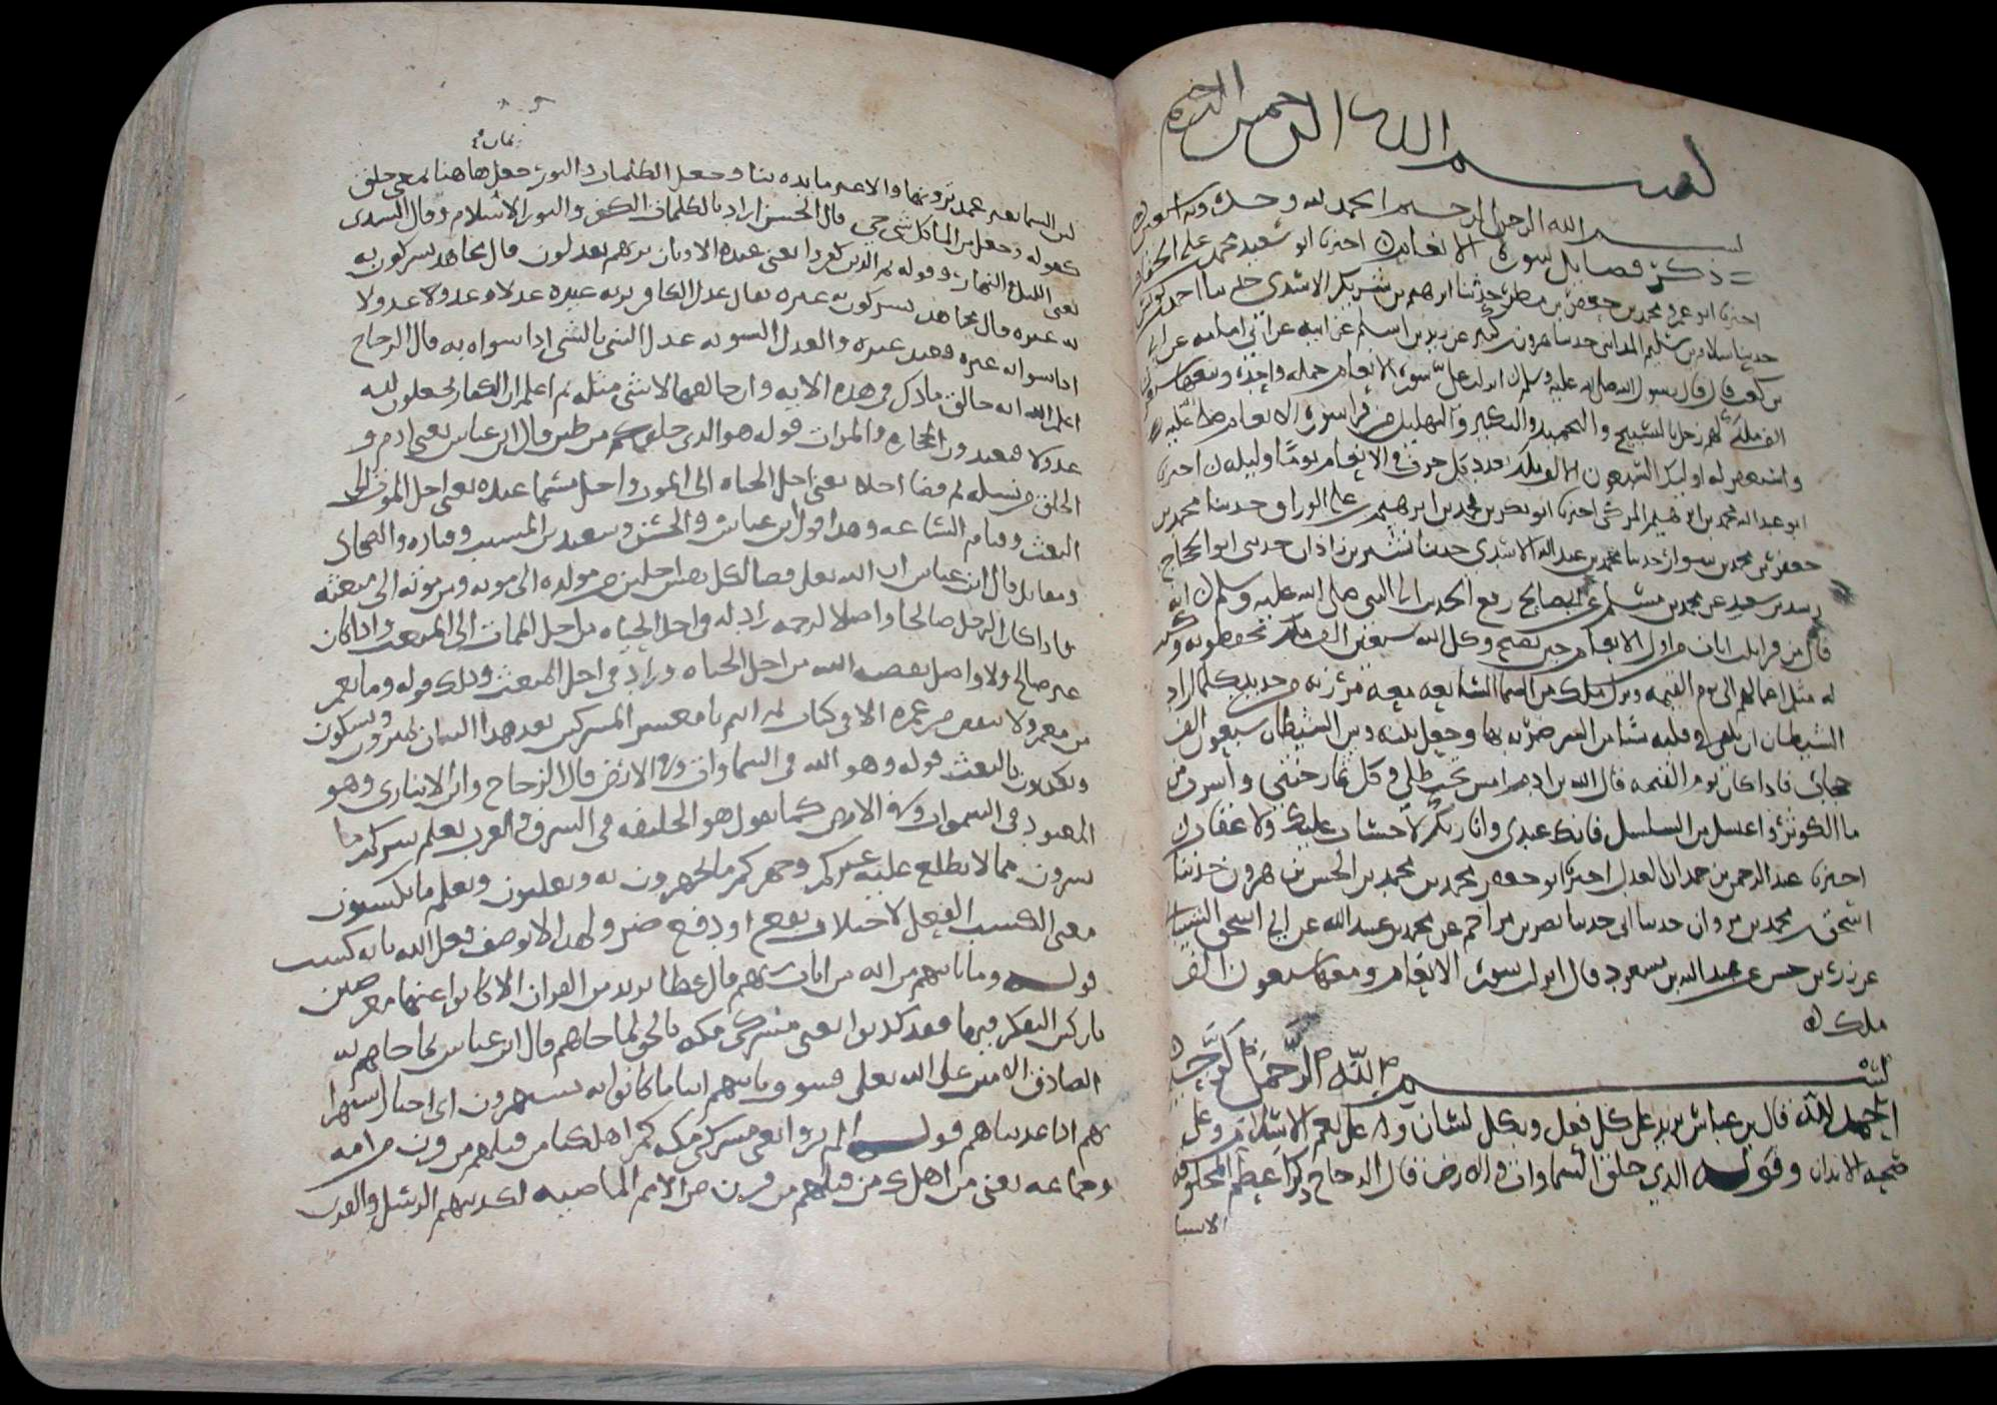 بسم الله الرحمن الرحيم
بسم الله الرحمن الرحيم الحمد لله وحده وبه استعين
ذكر فضايل سورة الانعام اخبرنا ابو سعيد محمد بن علي الخفاف
اخبرنا ابو عمرو محمد بن جعفر بن مطر حدثنا ابرهيم بن شريك الاسدي حدثنا احمد بن يونس
حدثنا سلام بن سليم المدايني حدثنا هرون بن كثير عن زيد بن اسلم عن ابيه عن ابي امامه عن ابي
بن كعب قال قال رسول الله صلى الله عليه وسلم انزلت علي سورة الانعام جملة واحدة وتبعها سبعون
الف ملك لهم زجل بالتسبيح والتحميد والتكبير والتهليل فمن قرا سورة الانعام صلى عليه
واستغفر له اوليك السبعون الف ملك بعدد كل حرف في الانعام يوما وليله اخبرنا
ابو عبد الله محمد بن ابرهيم المزكي اخبرنا ابو بكر بن محمد بن ابرهيم بن علي الوراق حدثنا محمد بن
جعفر بن محمد بن سوار حدثنا محمد بن عبد الله الاسدي حدثنا بشير بن زاذان حدثني ابو الحجاج
رسد بن سعيد عن محمد بن مسلم عن ابي صالح رفع الحديث الى النبي صلى الله عليه وسلم انه
قال من قرا ثلث ايات من اول الانعام حين يصبح وكل الله سبعين الف ملك يحفظونه وكتب
له مثل اعمالهم الى يوم القيمه وينزل ملك من السما السابعه معه مرزبه من حديد كلما اراد
الشيطان ان يلقي في قلبه شيا من الشر ضربه بها وجعل بينه وبين الشيطان سبعون الف
حجاب فاذا كان يوم القيمه قال الله بن ادم امش تحت ظلي وكل ثمار جنتي واشرب من
ما الكوثر واغتسل من السلسل فانك عبدي وانا ربك لا حساب عليك ولا عقاب
اخبرنا عبد الرحمن بن حمدان العدل اخبرنا ابو جعفر محمد بن محمد بن الحسن بن هرون حدثنا
اسحق بن محمد بن مروان حدثنا ابي حدثنا نصر بن مزاحم عن محمد بن عبيد الله عن ابي اسحق الشيباني
عن زر بن حبيش عن عبد الله بن مسعود قال انزلت سورة الانعام ومعها سبعون الف
ملك
بسم الله الرحمن الرحيم
الحمد لله قال بن عباس يريد على كل فعل وبكل لسان وله على نعم الاسلام وعلى
صحة الابدان وقوله الذي خلق السماوات والارض قال الزجاج ذكر اعظم المخلوقه
الاسيا
لان السما بغير عمد ترونها والارض مايده بنا وجعل الظلمات والنور جعل هاهنا بمعنى خلق
كقوله وجعلنا من الما كل شي حي قال الحسن اراد بالظلمات الكفر والنور الاسلام وقال السدي
يعني الليل والنهار وقوله ثم الذين كفروا يعني عبدة الاوثان بربهم يعدلون قال مجاهد يشركون به
به غيره قال مجاهد يشركون به غيره يقال عدل الكافر بربه غيره عدلا وعدولا
اذا سوا به غيره فعبد غيره والعدل التسويه عدل الشي بالشي اذا سواه به قال الزجاج
اعلم الله انه خالق ما ذكر في هذه الايه وان خالقها لا شي مثله ثم اعلم ان الكفار يجعلون له
عدولا فيعبدون الحجاره والموات قوله هو الذي خلقكم من طين قال ابن عباس يعني ادم و
الخلق من نسله ثم قضا اجلا يعني اجل الحياه الى الموت واجل مسما عنده يعني اجل الموت الى
البعث وقيام الساعه وهذا قول ابن عباس والحسن وسعيد بن المسيب وقتاده والضحاك
ومقاتل قال ابن عباس ان الله تعلى قضا لكل نفس اجلين من مولده الى موته ومن موته الى مبعثه
فاذا كان الرجل صالحا واصلا لرحمه زاد له في اجل الحياه من اجل الممات الى المبعث واذا كان
غير صالح ولا واصل نقصه الله من اجل الحياه وزاد في اجل المبعث وذلك قوله وما يعمر
من معمر ولا ينقص من عمره الا في كتاب ثم انتم يا معشر المشركين بعد هذا البيان تمترون وتشكون
وتكذبون بالبعث قوله وهو الله في السماوات وفي الارض قال الزجاج وابن الانباري وهو
المعبود في السموات وفي الارض كما تقول هو الخليفه في الشرق والغرب يعلم سركم ما
تسرون مما لا يطلع عليه غيركم وجهركم ما تجهرون به وتعلنون ويعلم ما تكسبون
معنى الكسب الفعل لاجتلاب نفع او دفع ضر ولهذا لا يوصف فعل الله بانه كسب
قوله وما تاتيهم من ايه من ايات ربهم قال عطا يريد من القران الا كانوا عنها معرضين
تاركين التفكر فيها فقد كذبوا يعني مشركي مكه بالحق لما جاهم قال ابن عباس لما جاهم به
الصادق الامين على الله تعلى فسوف ياتيهم انبا ما كانوا به يستهزون اي اخبار استهزا
يهم اذا عذبناهم قوله الم يروا يعني مشركي مكه كم اهلكنا من قبلهم من قرن من امه
وجماعه يعني من اهلك من قبلهم من قرن من الامم الماضيه لتكذيبهم الرسل والقرن